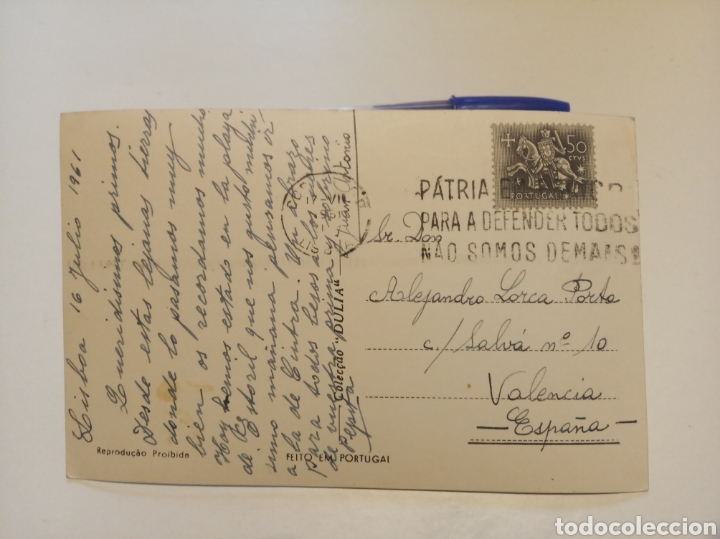 Lisboa 16 Julio 1961
Queridísimos primos.
Desde estas lejanas tierras
donde lo pasamos muy
bien os recordamos mucho
Hoy hemos estado en la playa
de Estoril que nos gustó muchí
simo mañana pensamos ir
a la de Cintra. Un abrazo
para todos besos a los
de vuestra prima y sobrino
Pepita
Juan Antonio
Colecção "DULIA"
Reprodução Proibida
FEITO EM PORTUGAL
50
CTVS
PORTUGAL
PÁTRIA
PARA A DEFENDER TODOS
NÃO SOMOS DEMAIS
Sr. Don
Alejandro Lorca Porto
c/ Salvá nº 10
Valencia
—España—
todocoleccion